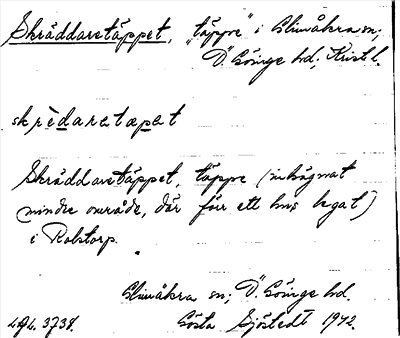 Skräddaretäppet, "täppe" i Glimåkra sn;
Ö. Göinge hd; Kristl.
skrèdaretæpət
Skräddaretäppet, täppe (inhägnat
mindre område, där förr ett hus legat)
i Robtorp.
Glimåkra sn; Ö. Göinge hd.
LAL. 3738. Gösta Sjöstedt 1942.